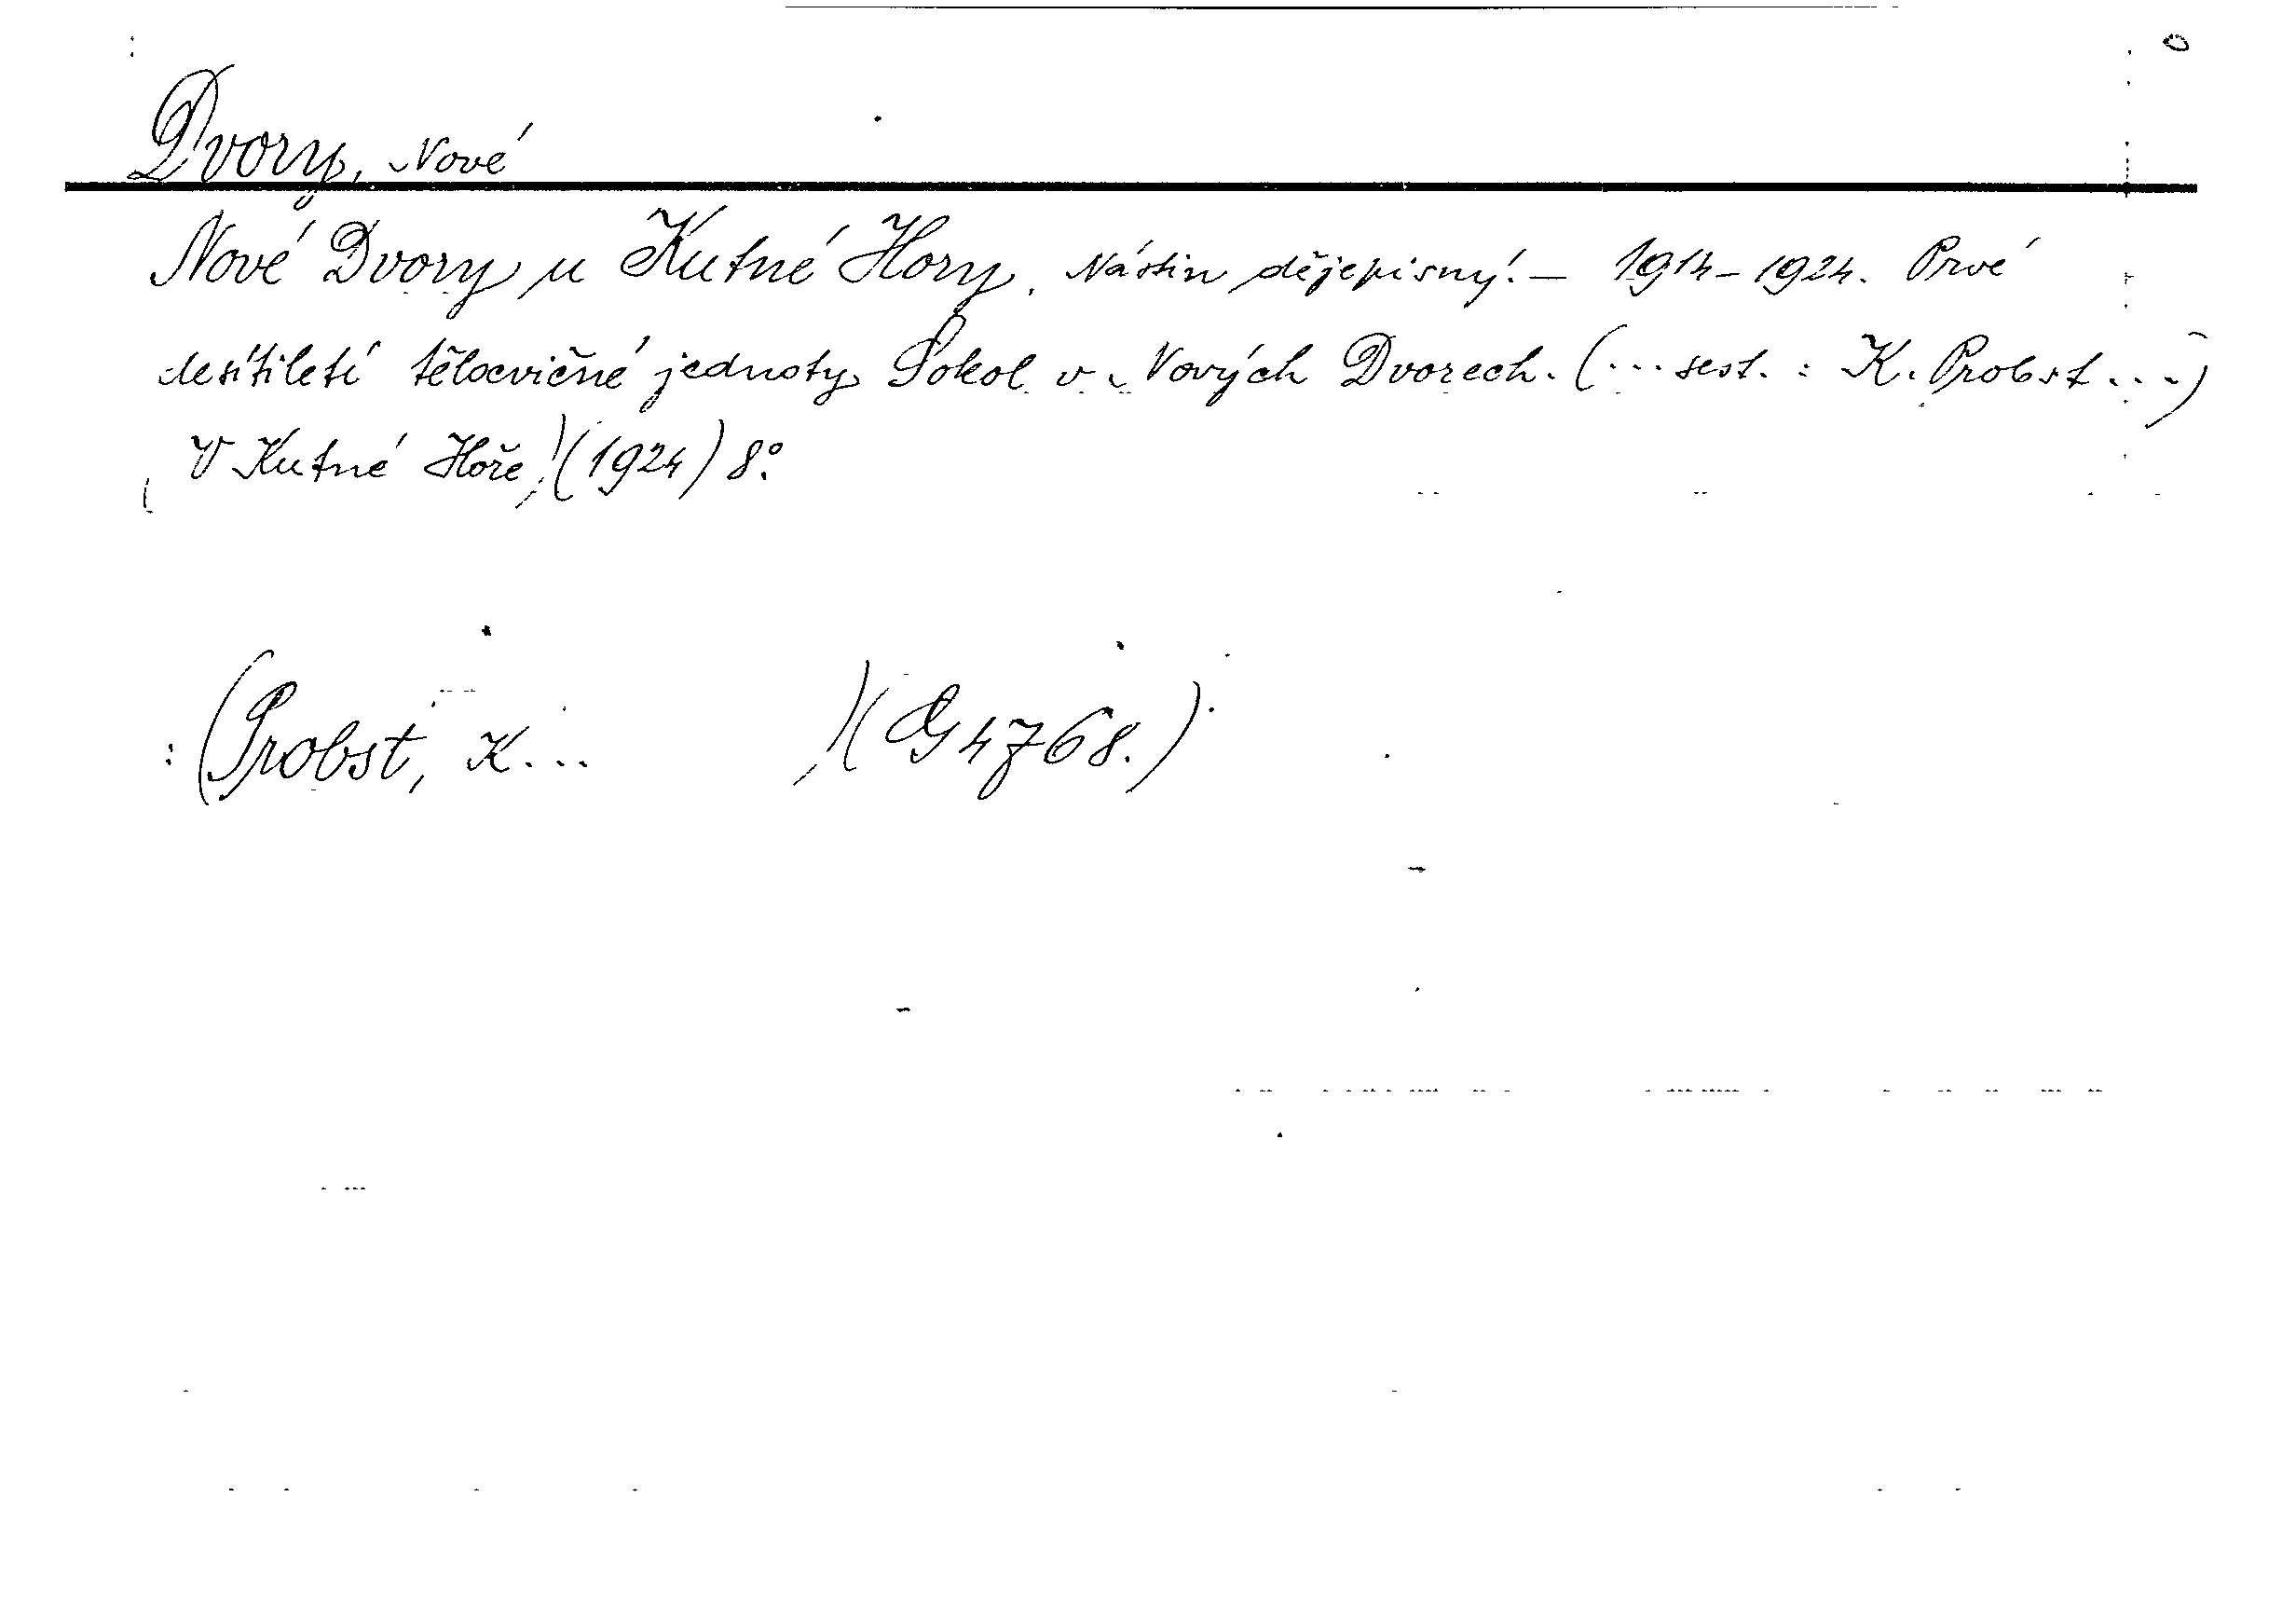 Dvory, Nové
Nové Dvory u Kutné Hory. Nástin dějepisný. — 1914-1924. Prvé
desítiletí tělocvičné jednoty Sokol v Nových Dvorech. (... sest. : K. Probst ...)
V Kutné Hoře, (1924) 8°.
(Probst, K... )(G 4768.)